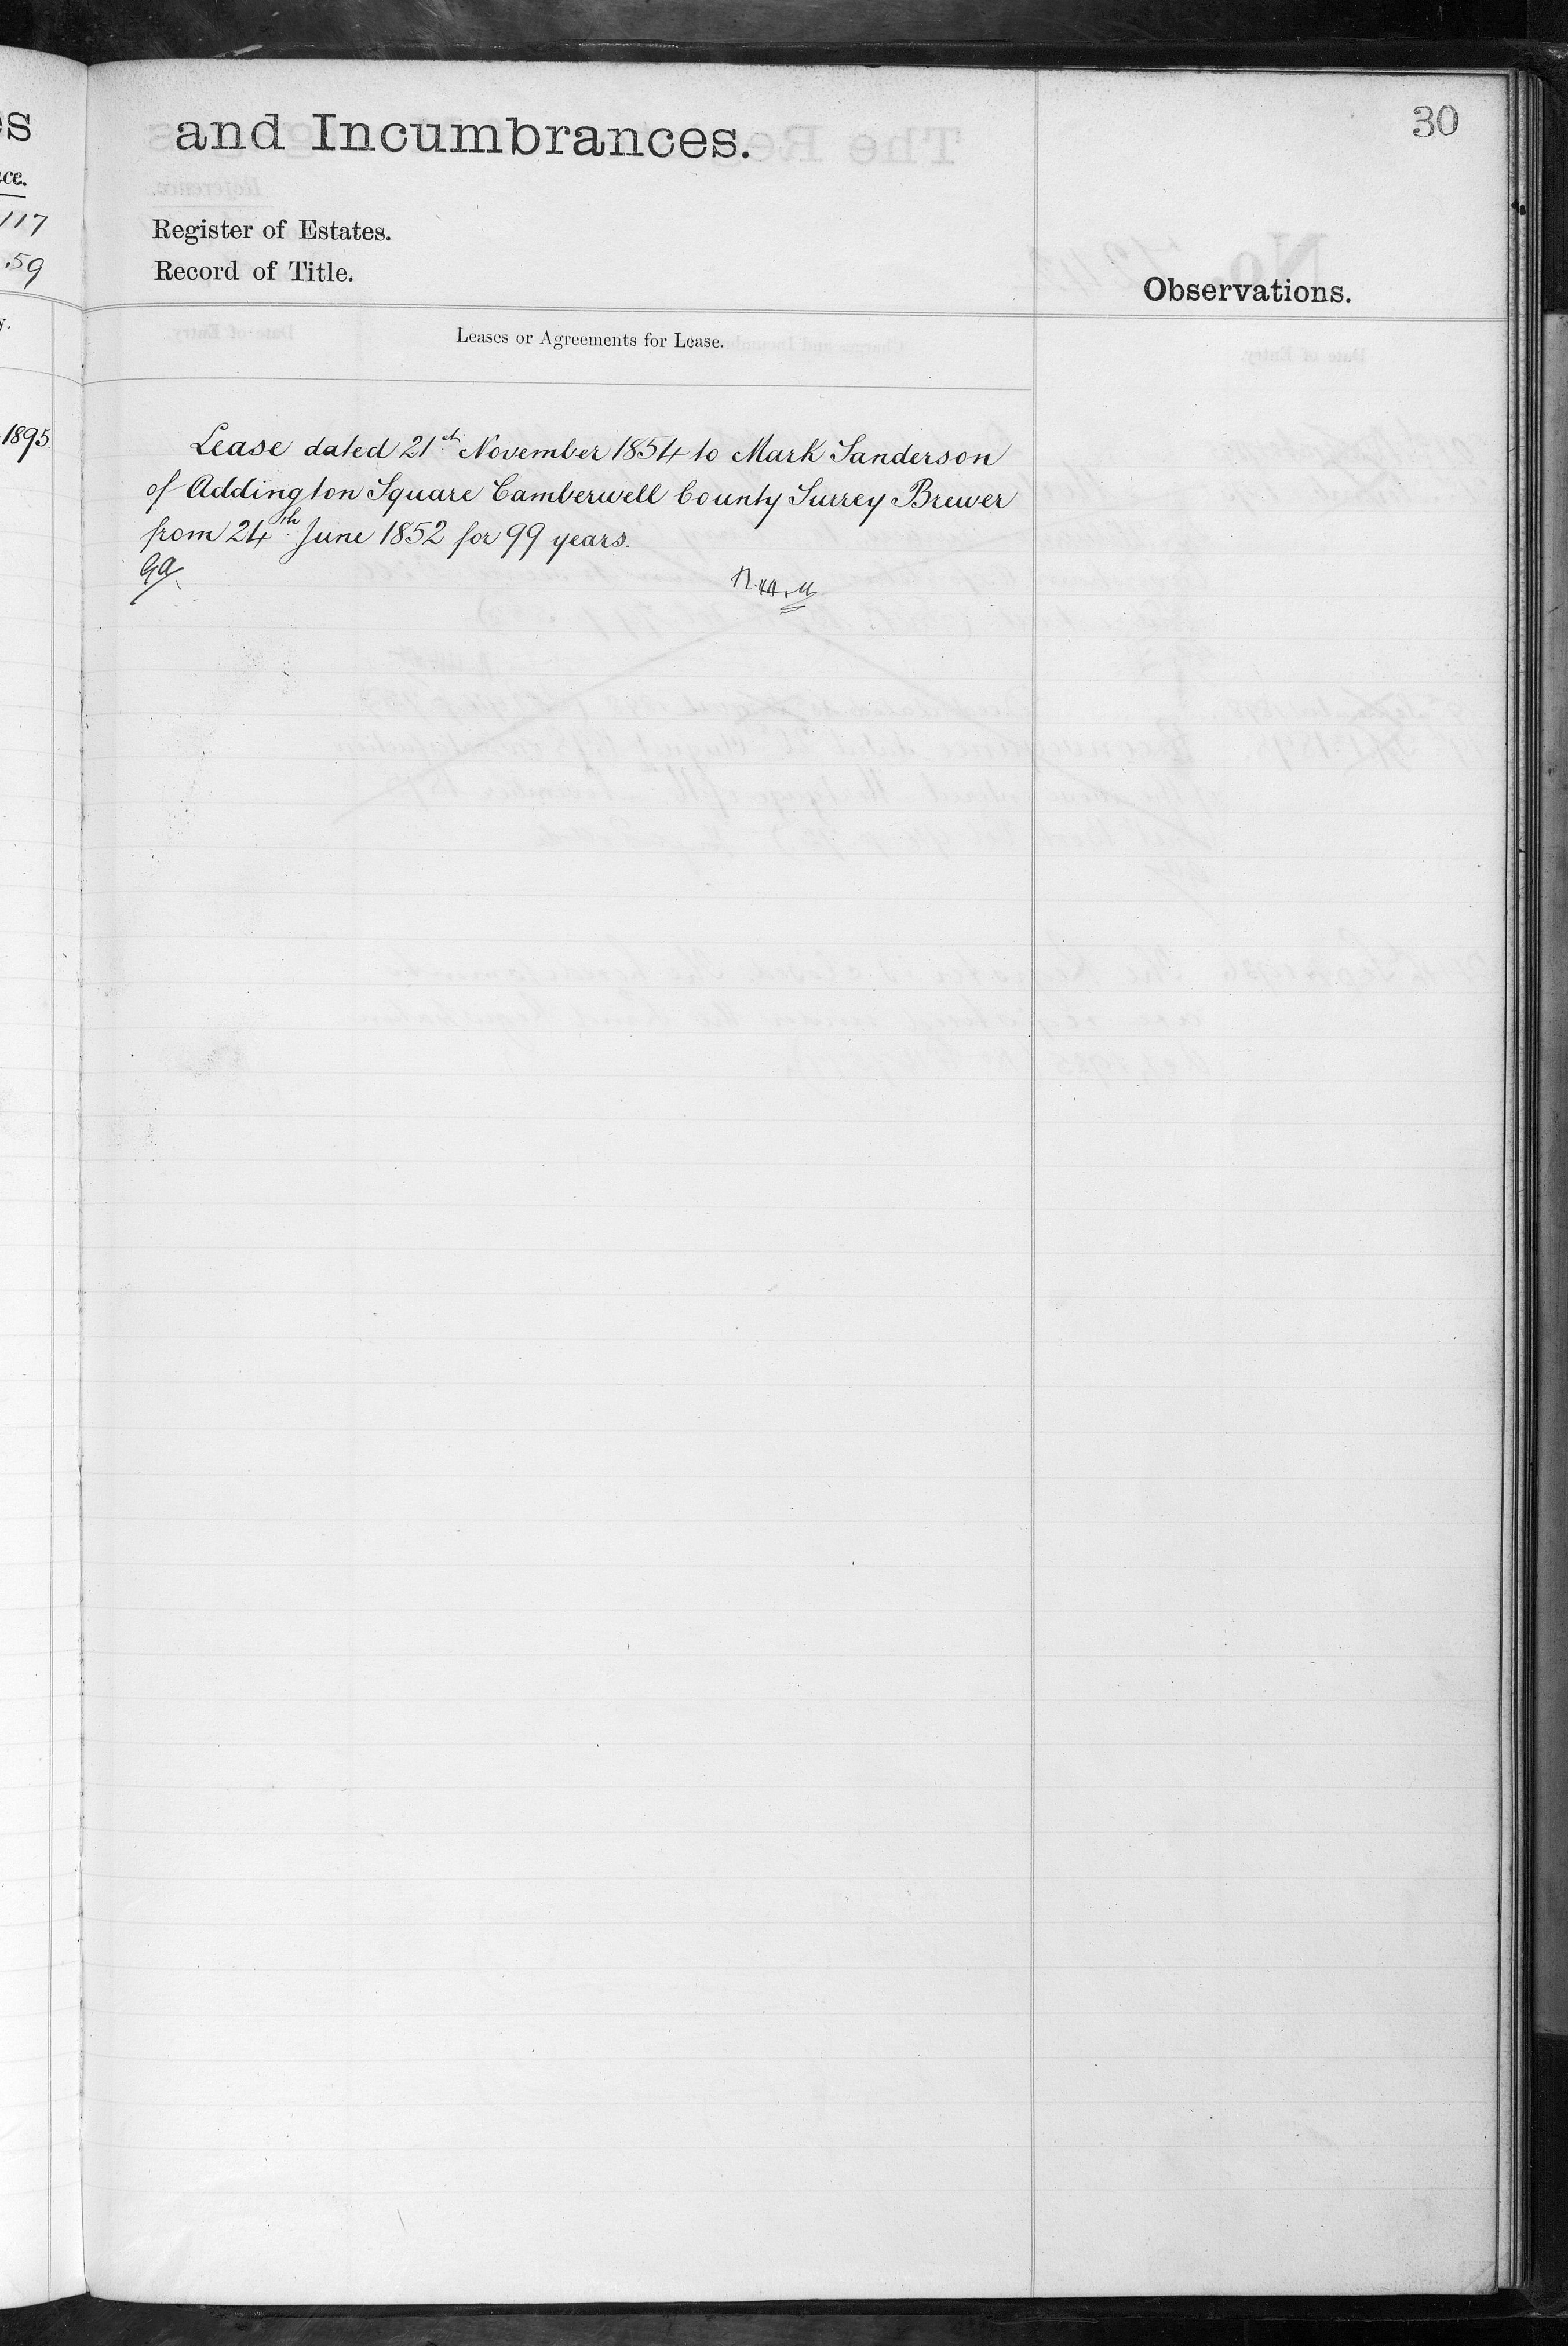 es
ce.
117
59
y.
1895
and Incumbrances.
30
Register of Estates.
Record of Title.
Observations.
Leases or Agreements for Lease.
Lease dated 21st November 1854 to Mark Sanderson
of Addington Square Camberwell County Surrey Brewer
from 24th June 1852 for 99 years.